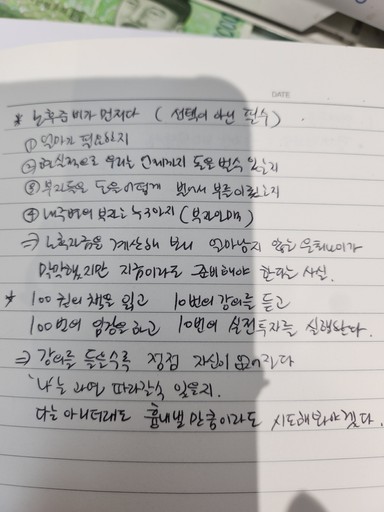 DATE
* 노후준비가 먼저다 ( 선택이 아닌 필수 ) .
① 얼마가 필요한지
② 현실적으로 우리는 언제까지 돈을 벌수 있을지
③ 부자들은 돈을 어떻게 벌어서 부를 이뤘는지
④ 내주변의 부자는 누구인지 ( 부자의 )
⇒ 노후자금을 계산해 보니 얼마남지 않은 은퇴시기가
막막했지만 지금이라도 준비해야 한다는 사실.
* 100 권의 책을 읽고 10번의 강의를 듣고
100번의 임장을 하고 10번의 실전투자를 실행한다.
⇒ 강의를 들을수록 점점 자신이 없어진다
나는 과연 따라갈수 있을지.
다는 아니더래도 흉내낼 만큼이라도 시도해봐야겠다.